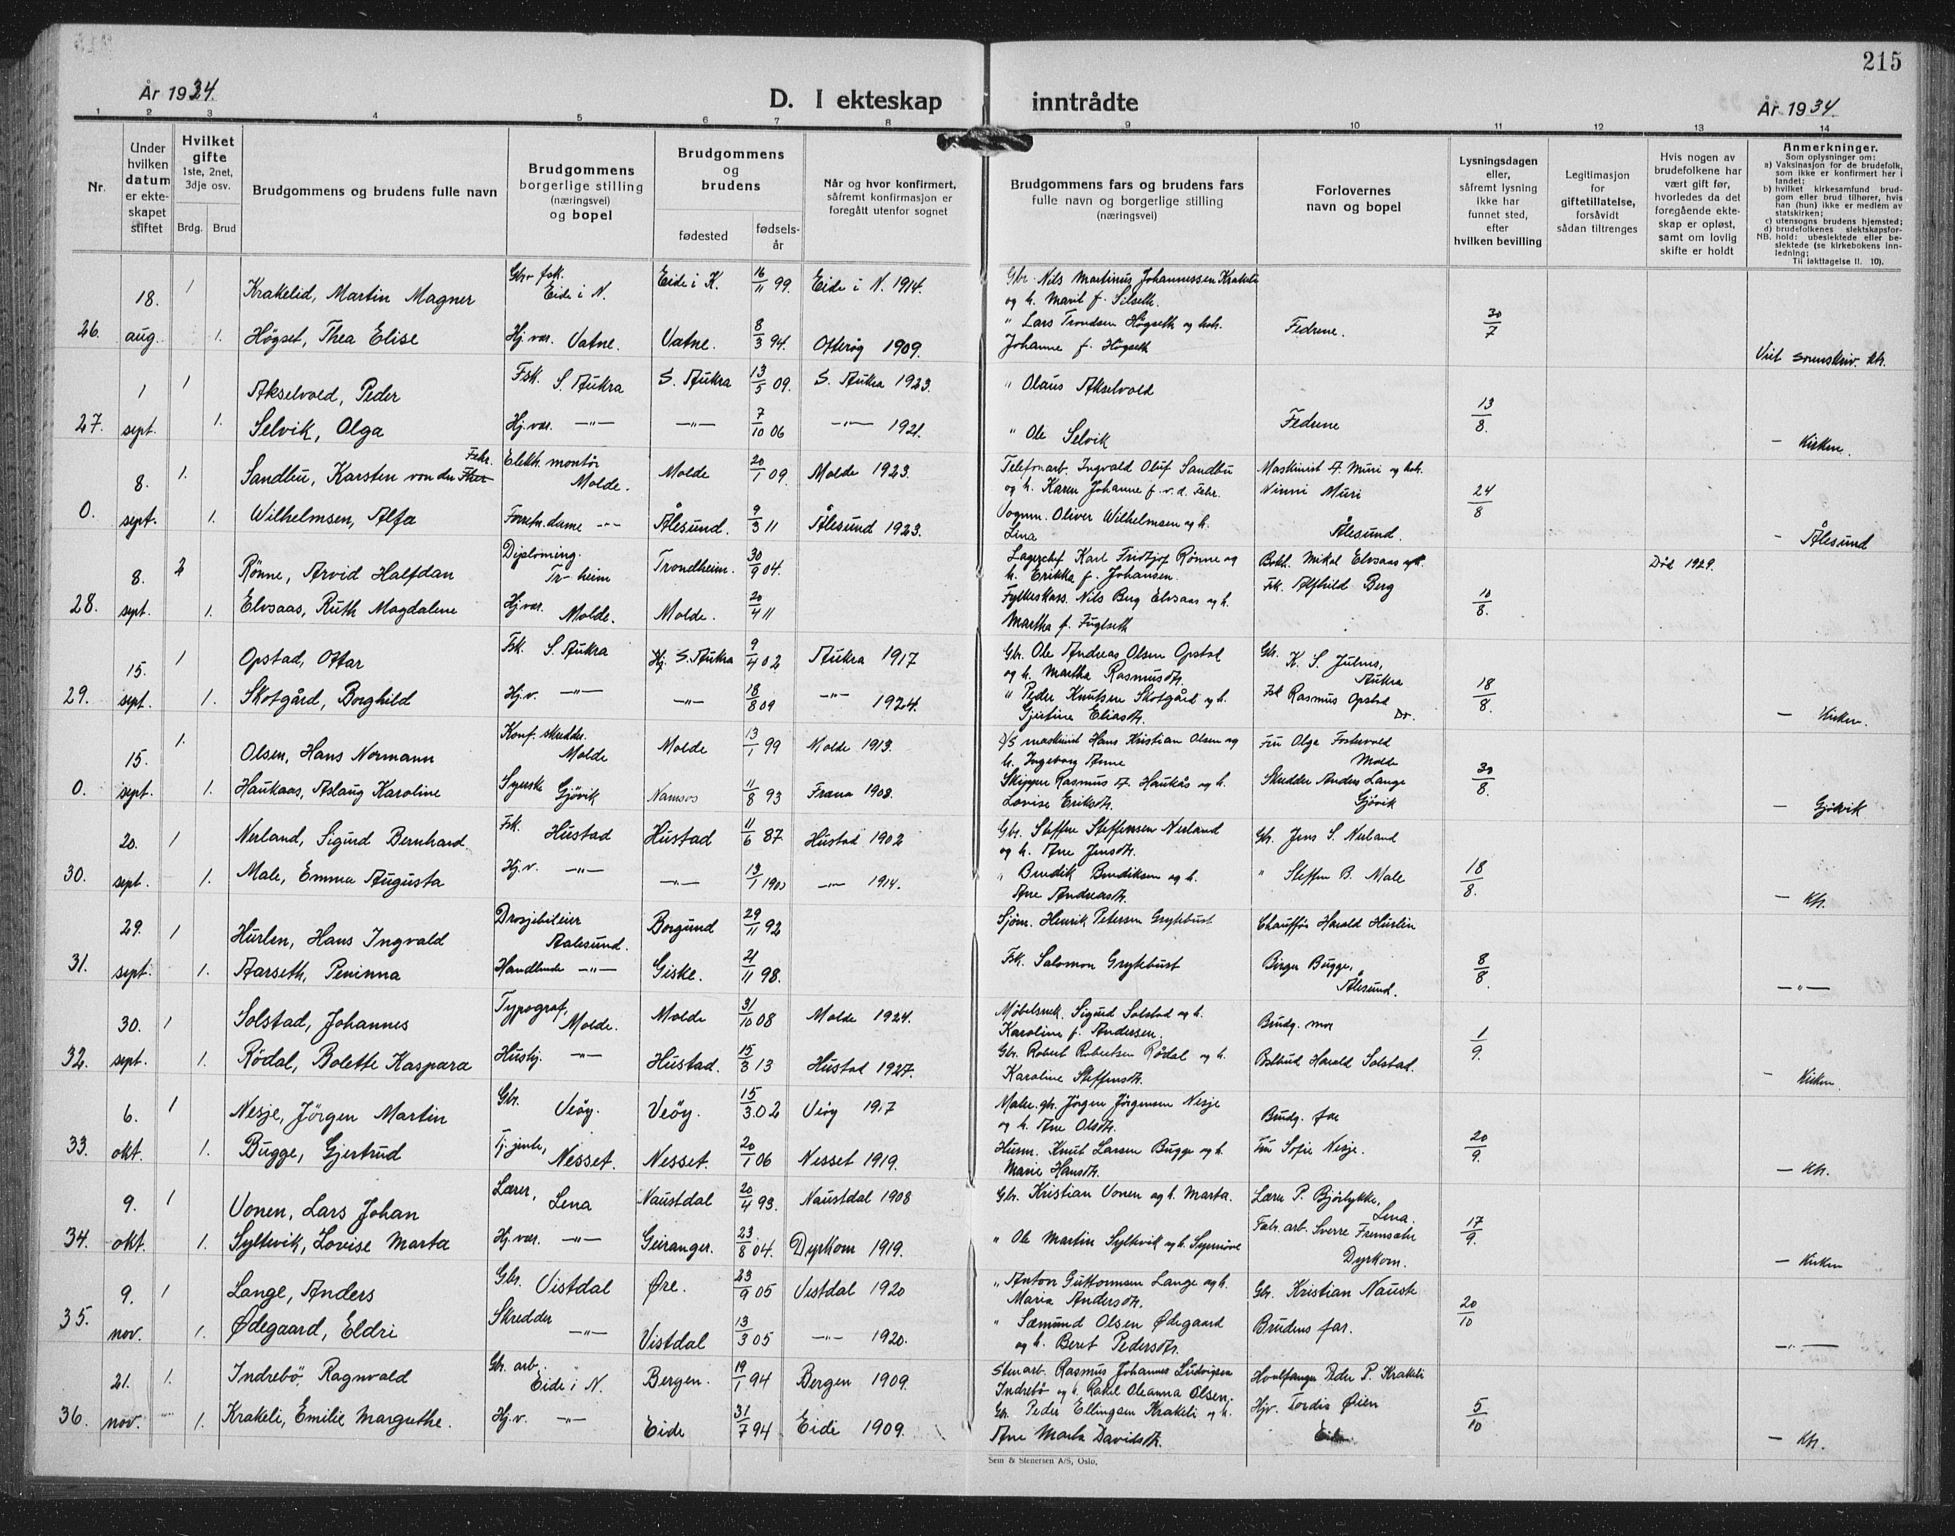 215
År 1934.
D. I ekteskap inntrådte
År 1934.
1 2 3 4 5 6 7 8 9 10 11 12 13 14
Nr.
Under hvilken datum er ekteskapet stiftet
Hvilket gifte
1ste, 2net, 3dje osv.
Brdg. Brud
Brudgommens og brudens fulle navn
Brudgommens borgerlige stilling (næringsvei) og bopel
Brudgommens og brudens
fødested
fødsels-år
Når og hvor konfirmert, såfremt konfirmasjon er foregått utenfor sognet
Brudgommens fars og brudens fars fulle navn og borgerlige stilling (næringsvei)
Forlovernes navn og bopel
Lysningsdagen eller, såfremt lysning ikke har funnet sted, efter hvilken bevilling
Legitimasjon for giftetillatelse, forsåvidt sådan tiltrenges
Hvis nogen av brudefolkene har vært gift før, hvorledes da det foregående ekteskap er opløst, samt om lovlig skifte er holdt
Anmerkninger.
Som oplysninger om:
a) Vaksinasjon for de brudefolk, som ikke er konfirmert her i landet;
b) hvilket kirkesamfund brudgom eller brud tilhører, hvis han (hun) ikke er medlem av statskirken;
c) utensogns brudens hjemsted;
d) brudefolkenes slektskapsforhold: ubeslektede eller beslektede (se kirkebokens innledning;
NB.
Til iakttagelse ll. 10).
18. 1 Krakelid, Martin Magner Gbr fsk. Eide i N. Eide i K. 16/11 99. Eide i N. 1914. Gbr. Nils Martinus Johannessen Krakeli
og h. Marit f. Silseth.
26. aug. 1. Høgset, Thea Elise Hj. vær. Vatne. Vatne. 8/3 94. Otterøy 1909. " Lars Trondsen Høgseth og h. Fedrene. 30/7
Johanne f. Høgseth
1 1 Akselvold, Peder Fsk. S. Aukra S. Aukra 13/5 09. S. Aukra 1923. " Olaus Akselvold
27. sept. 1. Selvik, Olga Hj. vær. —"— —"— 7/10 06 —"— 1921. " Ole Selvik Fedrene 13/8. — Kirken.
8. 1. Sandbu, Karsten von der Fehr. Elektr. montør Molde. Molde 20/1 09. Molde 1923. Telefonarb. Ingvald Oluf Sandbu Maskinist A. Muri og
og h. Karen Johanne f. v. d. Fehr. Ninni Muri 24/8
0. sept. 1. Wilhelmsen, Alfa —"— Ålesund. 9/3 11 Ålesund 1923. Vognm. Oliver Wilhelmsen og h. Ålesund.
Lina — Ålesund
8. 2 Rönne, Arvid Halfdan Diploming. Tr-heim Trondheim. 30/9 04. Lagerchef Karl Fridtjof Rönne og Mikal Elvsaas og
h. Erikka f. Johansen. Frk. Alfhild Berg Død 1929.
28. sept. 1. Elvsaas, Ruth Magdalene Hj. vær. Molde. Molde. 20/4 11 Fylkeskass. Nils Berg Elvsaas og h. 10/8.
Martha f. Fuglseth
15. 1 Opstad, Ottar Fsk. S. Aukra Hj. S. Aukra 9/4 02 Aukra 1917 Gbr. Ole Andreas Olsen Opstad Gbr. K. S. Julnes, Aukra
og h. Martha Rasmusdtr.
29. sept. 1. Skotgård, Borghild Hj.v. —"— —"— 18/8 09 —"— 1924. " Peder Knutsen Skotgård og h. Fsk Rasmus Opstad 18/8.
Gjertine Eliasdtr. — Kirken.
15. 1. Olsen, Hans Normann Konf. skredder. Molde Molde 13/1 99 Molde 1913. D/S maskinist Hans Kristian Olsen og Fru Olga Fostervold Molde
h. Ingeborg Anne
0. sept. 1. Haukaas, Aslaug Karoline Syerske Gjövik Namsos 11/8 93 Fræna 1908. Skipper Rasmus A. Haukås og h. Skredder Anders Lange Gjövik 30/8.
Lovise Eriksdtr. — Gjövik
20. 1 Nerland, Sigurd Bernhard. Fsk. Hustad Hustad 11/6 87 Hustad 1902 Gbr. Steffen Steffensen Nerland Gbr. Jens S. Nerland
og h. Ane Jensdtr.
30. sept. 1. Male, Emma Augusta Hj.v. —"— —"— 13/1 1900 —"— 1914. " Bendik Bendiksen og h. " Steffen B. Male 18/8.
Ane Andreasdtr. — Ktr.
29. 1 Hurlen, Hans Ingvald Drosjebileier Aalesund. Borgund 29/11 92 Sjöm. Henrik Petersen Grytebust Chauffør Harald Hurlen
31. sept. 1. Aarseth, Peninna —"— Giske. 21/11 98. Fsk. Salomon Grytebust Birger Bugge, Ålesund. 8/8. —"—
30. 1 Solstad, Johannes Typograf, Molde. Molde 31/10 08 Molde 1924. Møbelsnek. Sigurd Solstad og h. Brudg. mor
Karoline f. Andersen.
32. sept. 1. Rödal, Bolette Kaspara Hushj. —"— Hustad. 15/3 13 Hustad 1927. Gbr. Robert Robertsen Rödal og h. Harald Solstad. 1/9.
Karoline Steffensdtr. — Kirken.
6. 1 Nesje, Jörgen Martin Gbr. Veöy. Veöy. 15/3 02 Veöy 1917 Jörgen Jörgensen Nesje Brudg. far
og h. Ane Olsdtr.
33. okt. 1. Bugge, Gjertrud Tj. jente, Nesset. Nesset. 20/1 06 Nesset 1919. Husm. Knut Larsen Bugge og h. Fru Sofie Nesje. 20/9.
Marie Hansdtr. — Ktr.
9. 1 Vonen, Lars Johan Lærer, Lena Naustdal 20/4 93. Naustdal 1908 Gbr. Kristian Vonen og h. Marta. Lærer P. Bjørlykke, Lena.
34. okt. 1. Syltevik, Lovise Marta Hj. vær. —"— Geiranger. 23/8 04. Dyrkorn 1919. " Ole Martin Syltevik og h. Synnöve Fabr. arb. Sverre Fremsæter Dyrkorn. 17/9. — Kirken
9. 1 Lange, Anders Gbr. Vistdal Øre. 23/9 05 Vistdal 1920 " Anton Guttormsen Lange og h. Gbr. Kristian Nauste
Maria Andersdtr.
35. nov. 1. Ødegaard, Eldri Skredder —"— Vistdal 13/3 05 —"— 1920. " Sæmund Olsen Ødegaard Brudens far. 20/10
og h. Beret Pedersdtr. —"—
21. 1. Indrebö, Ragnvald Gbr. arb. Eide i N. Bergen. 19/1 94 Bergen 1909. Stenarb. Rasmus Johannes Ludvigsen Hvalfanger Peder P. Krakeli
Indrebö og h. Rakel Oleanna Olsen.
36. nov. " 1. Krakeli, Emilie Margrethe. Hj.v. —"— Eide 31/7 94 Eide 1909. Gbr. Peder Ellingsen Krakeli og h. Hjv. Tordis Øien 5/10
Ane Marta Davidsdtr. Eide — Ktr.
Sem & Stenersen A/S, Oslo.